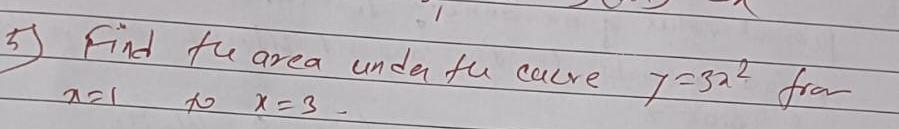 5) Find the area under the curve y=3x² from
x=1 to x=3.